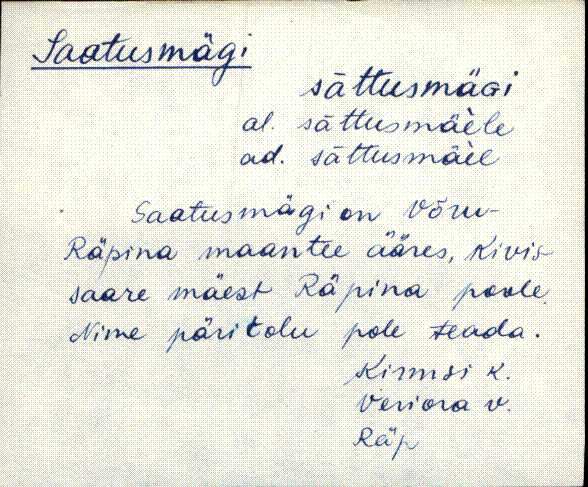 Saatusmägi
sāttusmäGi
al. sāttusmäèle
ad. sāttusmäèl
Saatusmägi on Võru-
Räpina maantee ääres, Kivis-
saare mäest Räpina poole.
Nime päritolu pole teada.
Kirmsi k.
Veriora v.
Räp